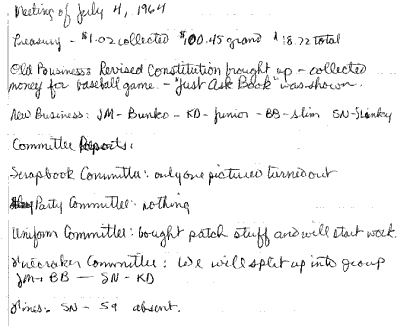 Meeting of July 4, 1964
Treasury - $1.02 collected $100.45 grand $18.72 total
Old Business: Revised Constitution brought up - collected
money for baseball game. - "Just Ask Book" was shown.
New Business: JM - Bunko - KD - Junior - BB - Slim SN - Slinky
Committee Reports:
Scrapbook Committee: only one picture turned out
Party Committee: nothing
Uniform Committee: bought patch stuff and will start work.
Committee: We will split up into group
JM + BB — SN - KD
Fines: SN - 5¢ absent.